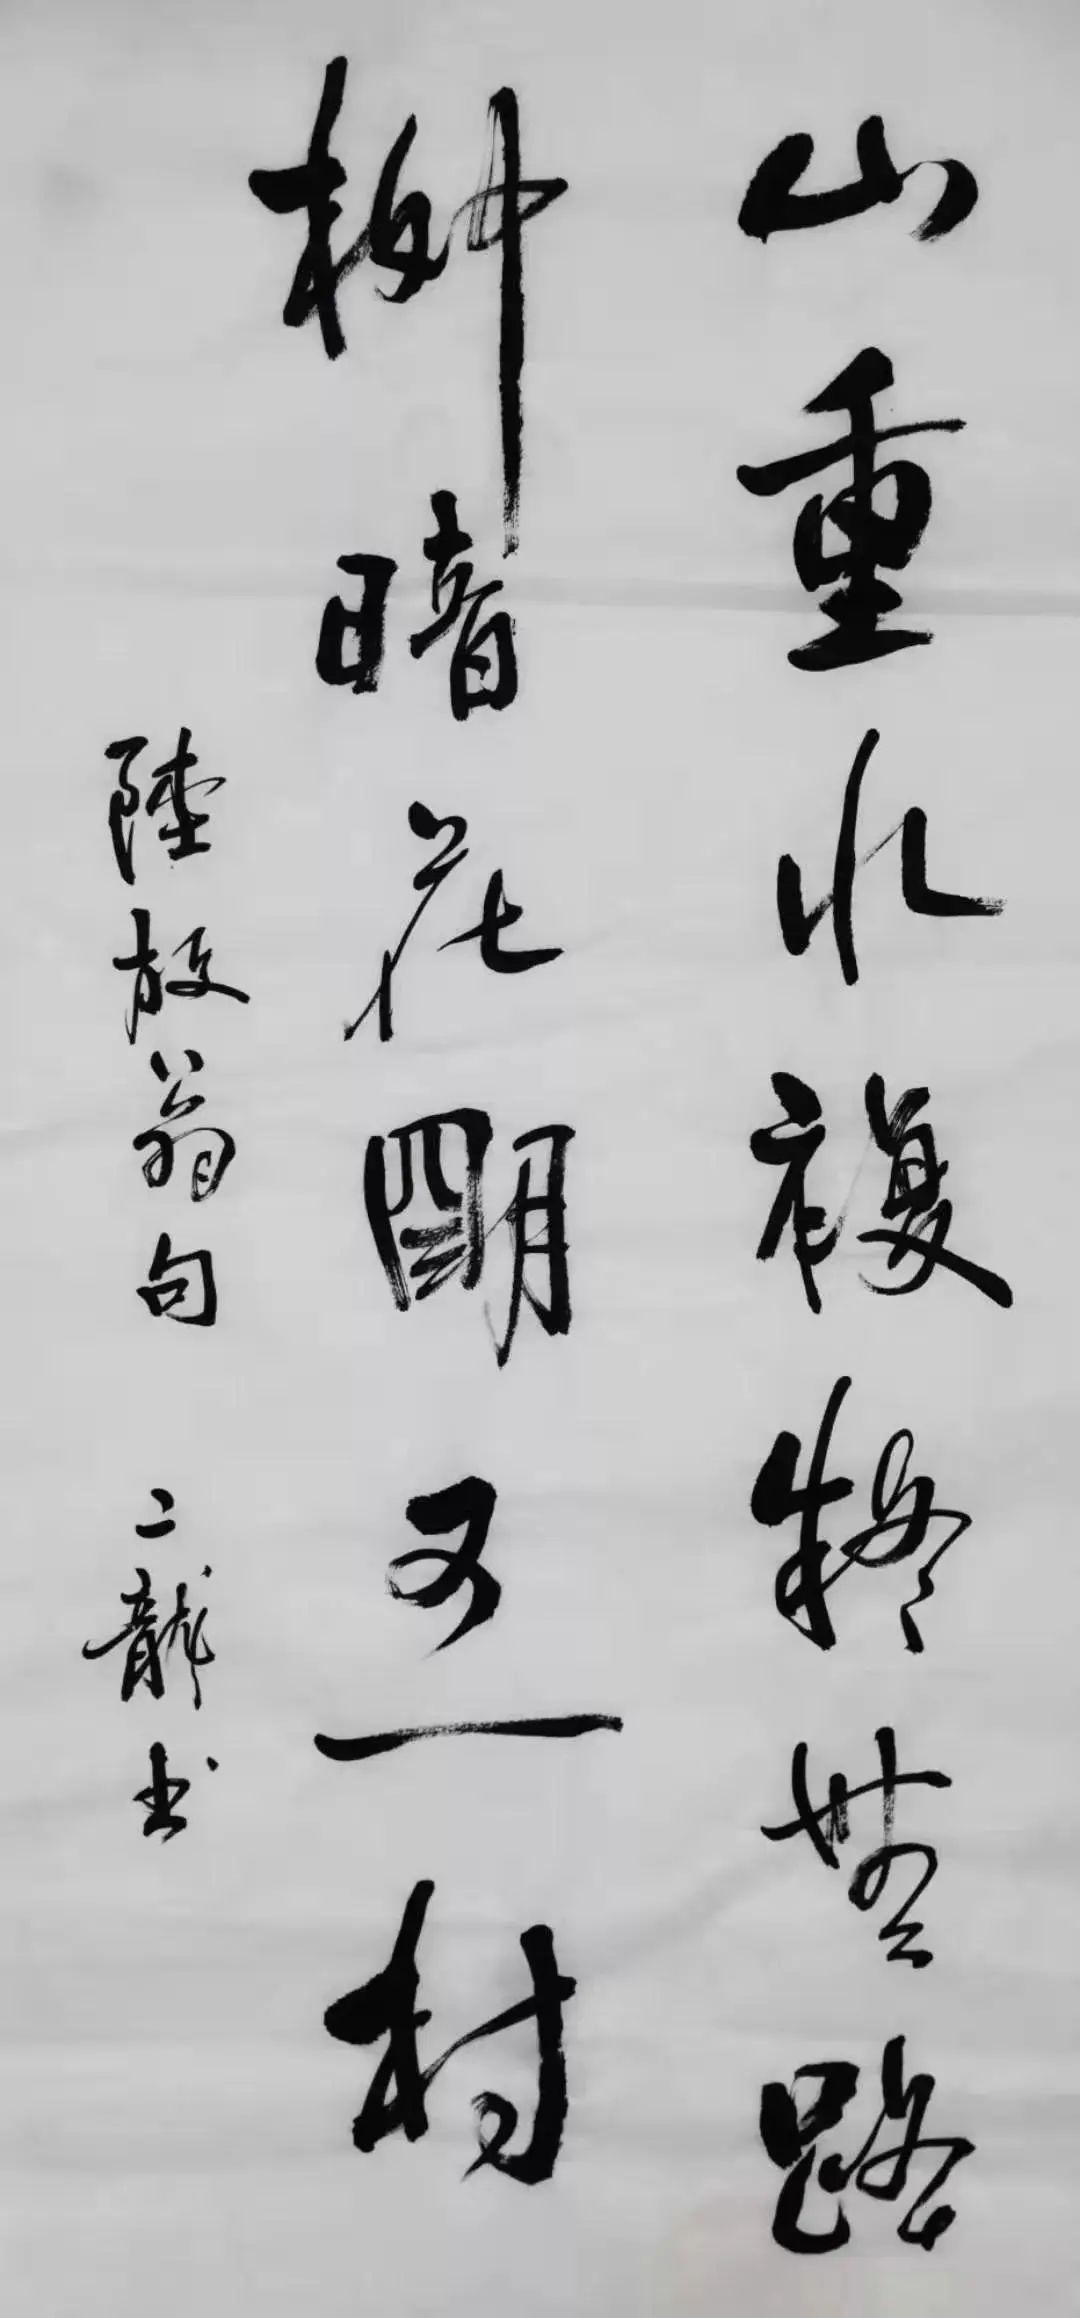 山重水複疑無路
柳暗花明又一村
陸放翁句 二龍书